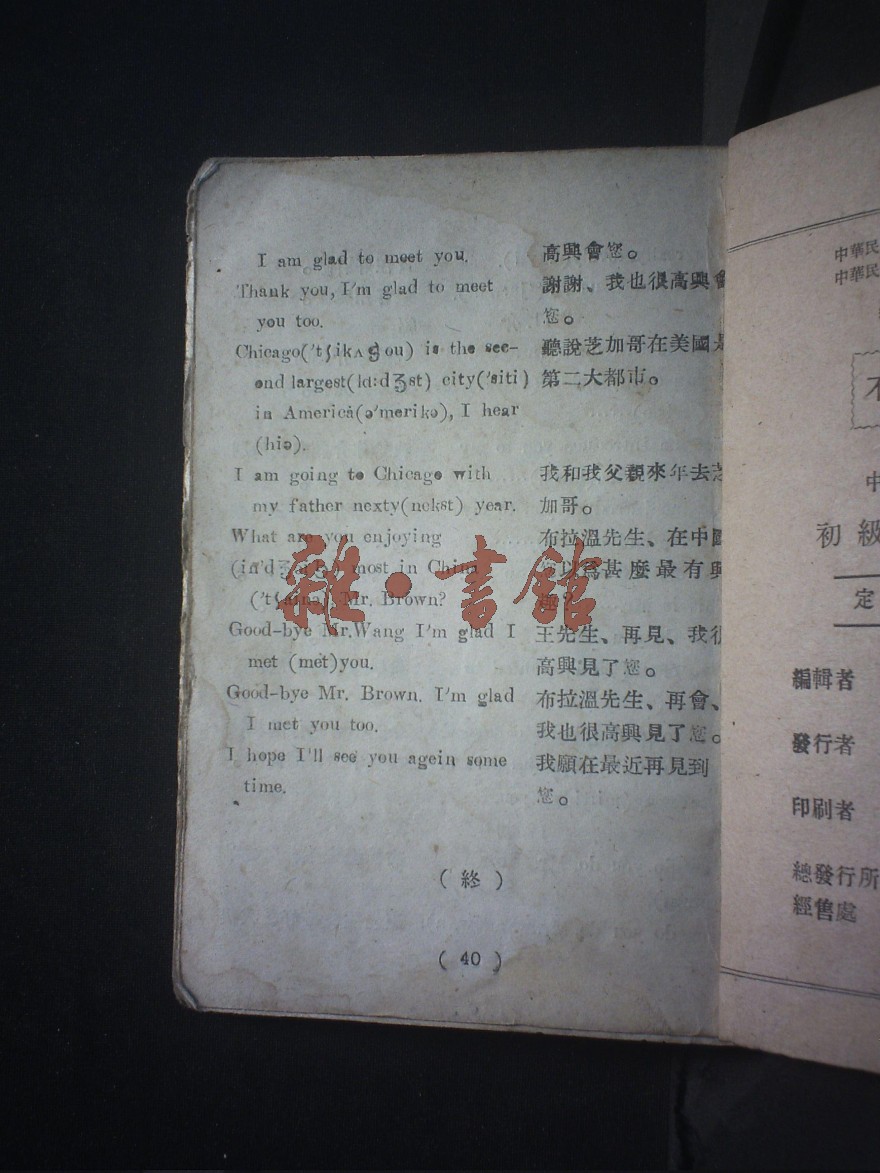 I am glad to meet you.
高興會您。
Thank you, I'm glad to meet
謝謝、我也很高興會
you too.
您。
Chicago('tʃikʌgou) is the sec-
聽說芝加哥在美國是
ond largest(lɑ:dʒst) city('siti)
第二大都市。
in America(ə'merikə), I hear
(hiə).
I am going to Chicago with
我和我父親來年去芝
my father nexty(nekst) year.
加哥。
What are you enjoying
布拉溫先生、在中國
most in China
以爲甚麼最有興
Mr. Brown?
Good-bye Mr.Wang I'm glad I
王先生、再見、我很
met (met)you.
高興見了您。
Good-bye Mr. Brown. I'm glad
布拉溫先生、再會、
I met you too.
我也很高興見了您。
I hope I'll see you agein some
我願在最近再見到
time.
您。
(終)
(40)
雜·書館
中華民
中華民
不
中
初級
定
編輯者
發行者
印刷者
總發行所
經售處